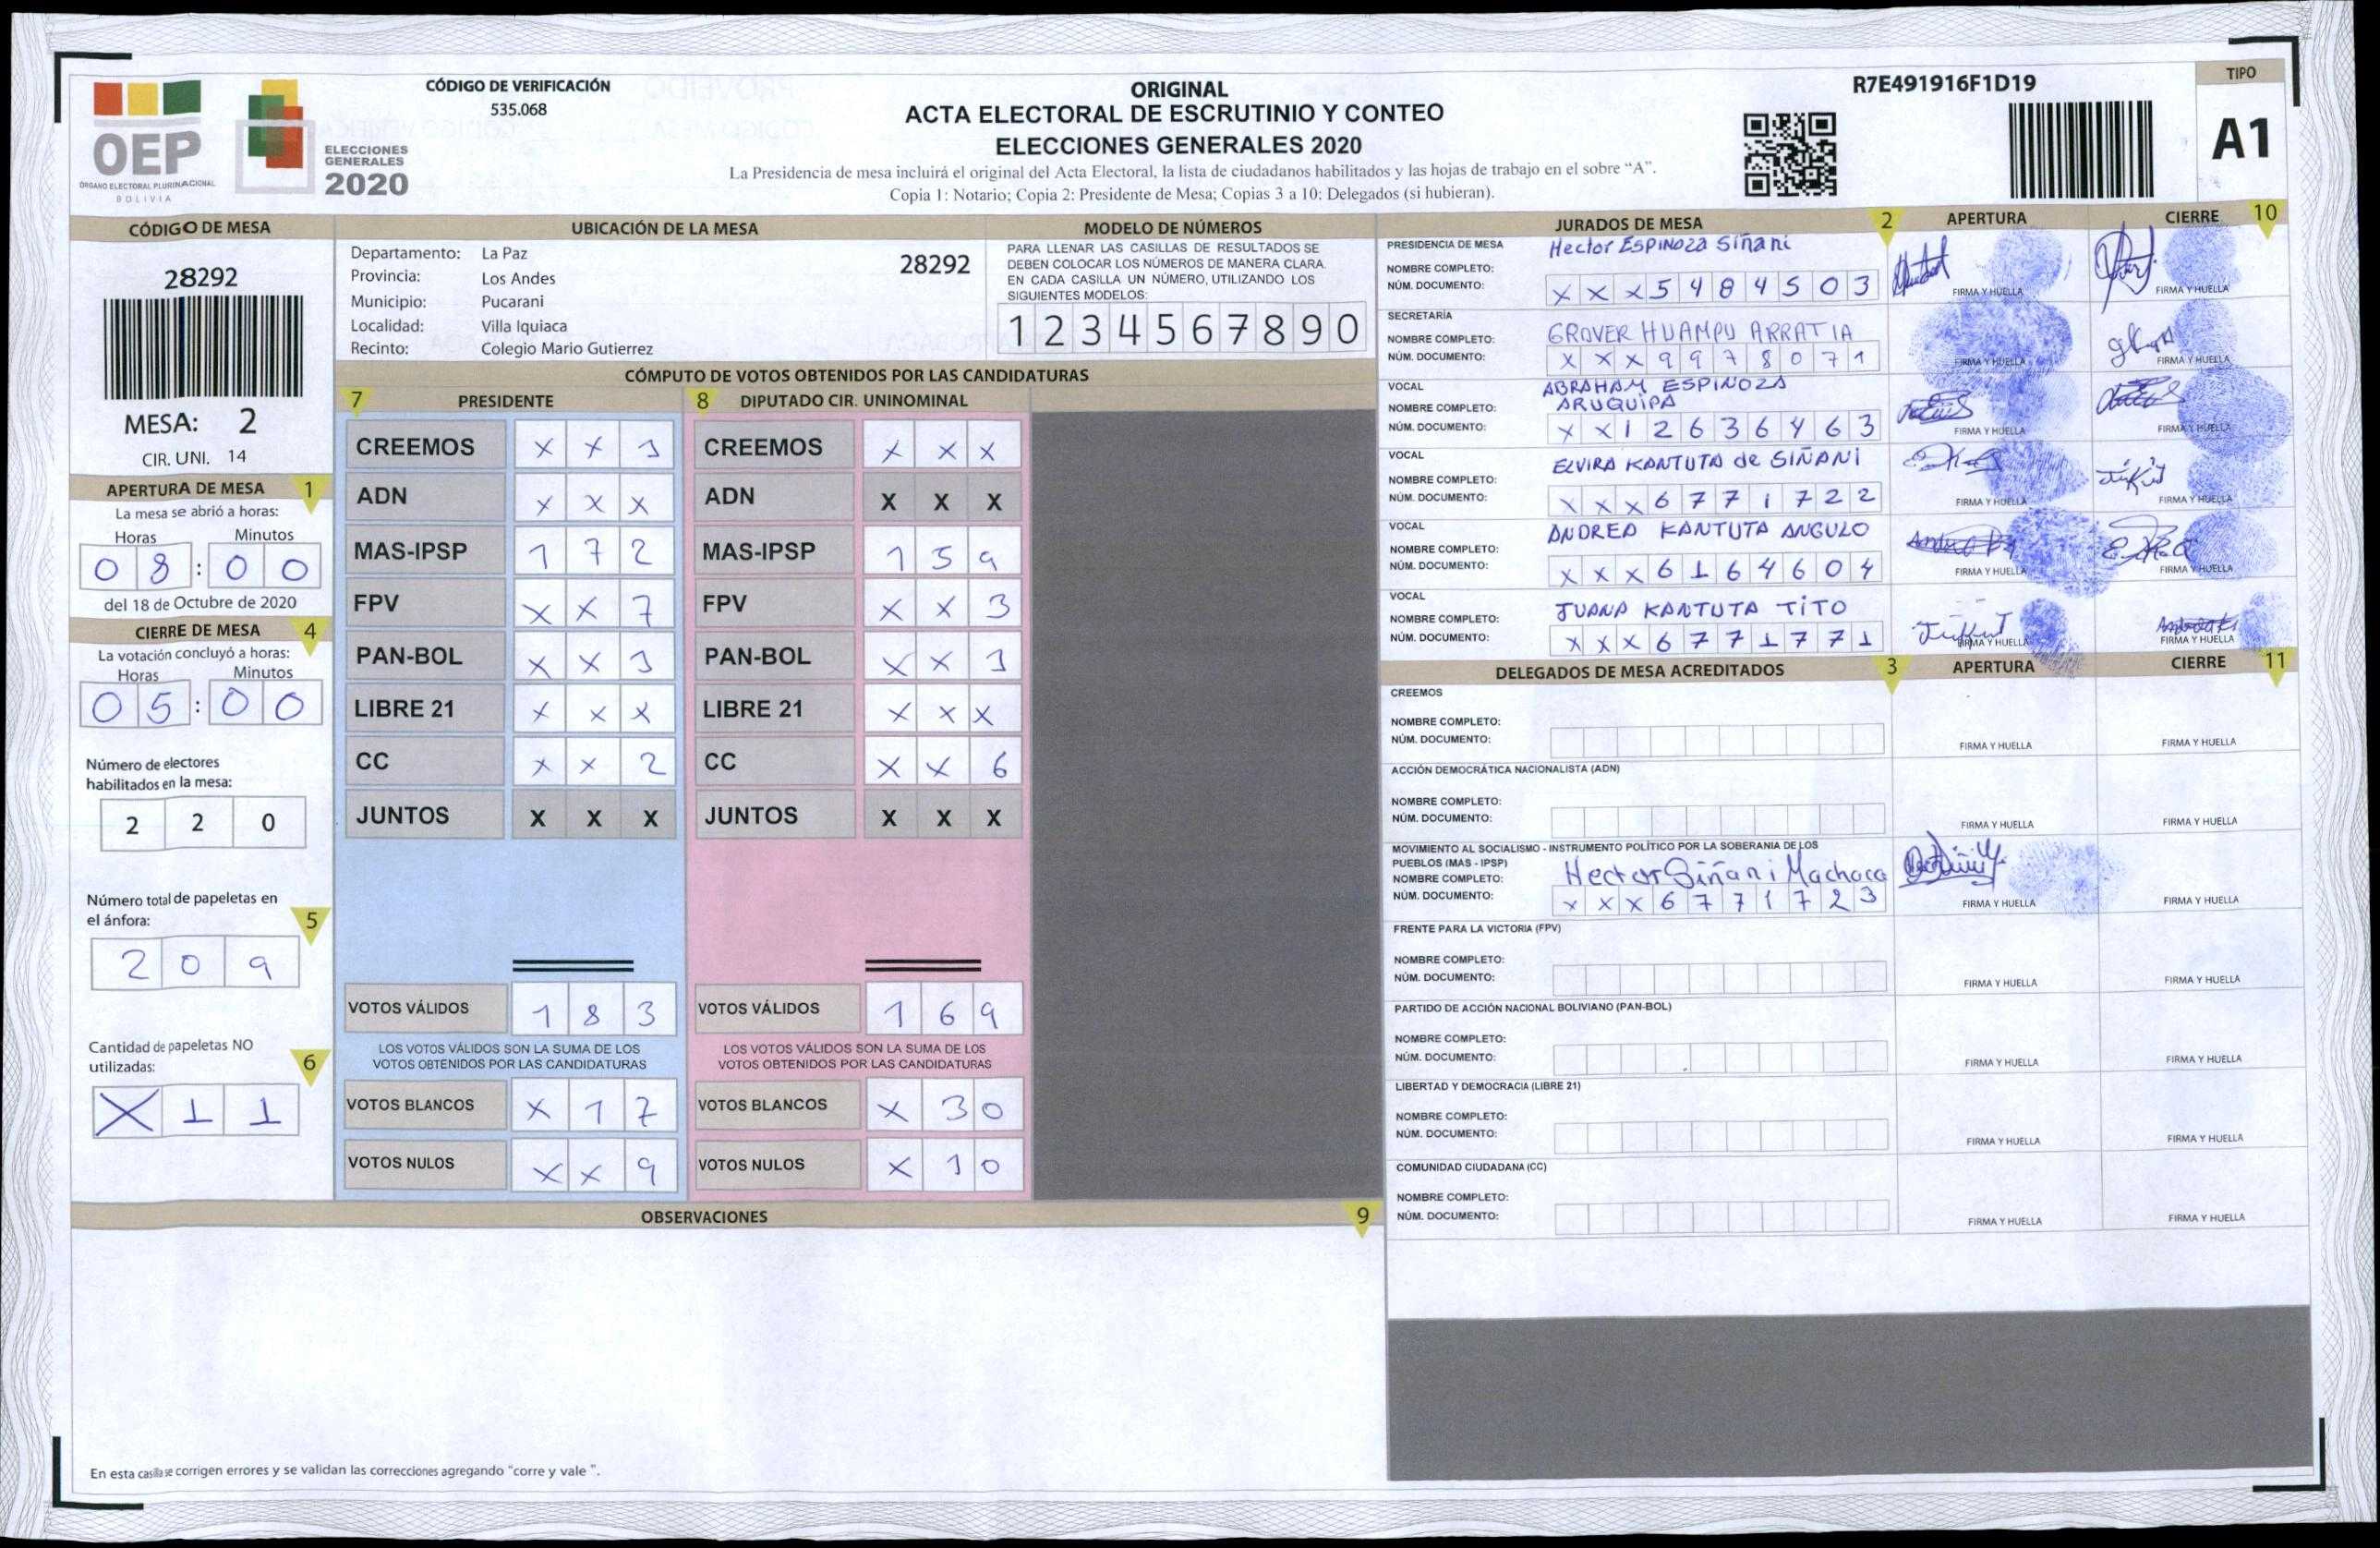 OEP
ÓRGANO ELECTORAL PLURINACIONAL
BOLIVIA
ELECCIONES
GENERALES
2020
CÓDIGO DE VERIFICACIÓN
535.068
ORIGINAL
ACTA ELECTORAL DE ESCRUTINIO Y CONTEO
ELECCIONES GENERALES 2020
La Presidencia de mesa incluirá el original del Acta Electoral, la lista de ciudadanos habilitados y las hojas de trabajo en el sobre “A”.
Copia 1: Notario; Copia 2: Presidente de Mesa; Copias 3 a 10: Delegados (si hubieran).
R7E491916F1D19
TIPO
A1
CÓDIGO DE MESA
28292
MESA: 2
CIR. UNI. 14
APERTURA DE MESA 1
La mesa se abrió a horas:
Horas Minutos
0 8 : 0 0
del 18 de Octubre de 2020
CIERRE DE MESA 4
La votación concluyó a horas:
Horas Minutos
0 5 : 0 0
Número de electores
habilitados en la mesa:
2 2 0
Número total de papeletas en
el ánfora: 5
2 0 9
Cantidad de papeletas NO
utilizadas: 6
X 1 1
UBICACIÓN DE LA MESA
Departamento: La Paz
Provincia: Los Andes
Municipio: Pucarani
Localidad: Villa Iquiaca
Recinto: Colegio Mario Gutierrez
28292
MODELO DE NÚMEROS
PARA LLENAR LAS CASILLAS DE RESULTADOS SE
DEBEN COLOCAR LOS NÚMEROS DE MANERA CLARA.
EN CADA CASILLA UN NÚMERO, UTILIZANDO LOS
SIGUIENTES MODELOS:
1 2 3 4 5 6 7 8 9 0
CÓMPUTO DE VOTOS OBTENIDOS POR LAS CANDIDATURAS
7 PRESIDENTE
CREEMOS X X 1
ADN X X X
MAS-IPSP 1 7 2
FPV X X 7
PAN-BOL X X 1
LIBRE 21 X X X
CC X X 2
JUNTOS X X X
VOTOS VÁLIDOS 1 8 3
LOS VOTOS VÁLIDOS SON LA SUMA DE LOS
VOTOS OBTENIDOS POR LAS CANDIDATURAS
VOTOS BLANCOS X 1 7
VOTOS NULOS X X 9
8 DIPUTADO CIR. UNINOMINAL
CREEMOS X X X
ADN X X X
MAS-IPSP 1 5 9
FPV X X 3
PAN-BOL X X 1
LIBRE 21 X X X
CC X X 6
JUNTOS X X X
VOTOS VÁLIDOS 1 6 9
LOS VOTOS VÁLIDOS SON LA SUMA DE LOS
VOTOS OBTENIDOS POR LAS CANDIDATURAS
VOTOS BLANCOS X 3 0
VOTOS NULOS X 1 0
OBSERVACIONES 9
En esta casilla se corrigen errores y se validan las correcciones agregando “corre y vale ”.
JURADOS DE MESA 2 APERTURA CIERRE 10
PRESIDENCIA DE MESA
NOMBRE COMPLETO: Hector ESPINOZA Siñani
NÚM. DOCUMENTO: X X X 5 4 8 4 5 0 3
FIRMA Y HUELLA FIRMA Y HUELLA
SECRETARÍA
NOMBRE COMPLETO: GROVER HUAMPU ARRATIA
NÚM. DOCUMENTO: X X X 9 9 7 8 0 7 1
FIRMA Y HUELLA FIRMA Y HUELLA
VOCAL
NOMBRE COMPLETO: ABRAHAM ESPINOZA
ARUQUIPA
NÚM. DOCUMENTO: X X 1 2 6 3 6 4 6 3
FIRMA Y HUELLA FIRMA Y HUELLA
VOCAL
NOMBRE COMPLETO: ELVIRA KANTUTA de SIÑANI
NÚM. DOCUMENTO: X X X 6 7 7 1 7 2 2
FIRMA Y HUELLA FIRMA Y HUELLA
VOCAL
NOMBRE COMPLETO: ANDREA KANTUTA ANGULO
NÚM. DOCUMENTO: X X X 6 1 6 4 6 0 4
FIRMA Y HUELLA FIRMA Y HUELLA
VOCAL
NOMBRE COMPLETO: JUANA KANTUTA TITO
NÚM. DOCUMENTO: X X X 6 7 7 1 7 7 1
FIRMA Y HUELLA FIRMA Y HUELLA
DELEGADOS DE MESA ACREDITADOS 3 APERTURA CIERRE 11
CREEMOS
NOMBRE COMPLETO:
NÚM. DOCUMENTO:
FIRMA Y HUELLA FIRMA Y HUELLA
ACCIÓN DEMOCRÁTICA NACIONALISTA (ADN)
NOMBRE COMPLETO:
NÚM. DOCUMENTO:
FIRMA Y HUELLA FIRMA Y HUELLA
MOVIMIENTO AL SOCIALISMO - INSTRUMENTO POLÍTICO POR LA SOBERANIA DE LOS
PUEBLOS (MAS - IPSP)
NOMBRE COMPLETO: Hector Siñani Machaca
NÚM. DOCUMENTO: X X X 6 7 7 1 7 2 3
FIRMA Y HUELLA FIRMA Y HUELLA
FRENTE PARA LA VICTORIA (FPV)
NOMBRE COMPLETO:
NÚM. DOCUMENTO:
FIRMA Y HUELLA FIRMA Y HUELLA
PARTIDO DE ACCIÓN NACIONAL BOLIVIANO (PAN-BOL)
NOMBRE COMPLETO:
NÚM. DOCUMENTO:
FIRMA Y HUELLA FIRMA Y HUELLA
LIBERTAD Y DEMOCRACIA (LIBRE 21)
NOMBRE COMPLETO:
NÚM. DOCUMENTO:
FIRMA Y HUELLA FIRMA Y HUELLA
COMUNIDAD CIUDADANA (CC)
NOMBRE COMPLETO:
NÚM. DOCUMENTO:
FIRMA Y HUELLA FIRMA Y HUELLA